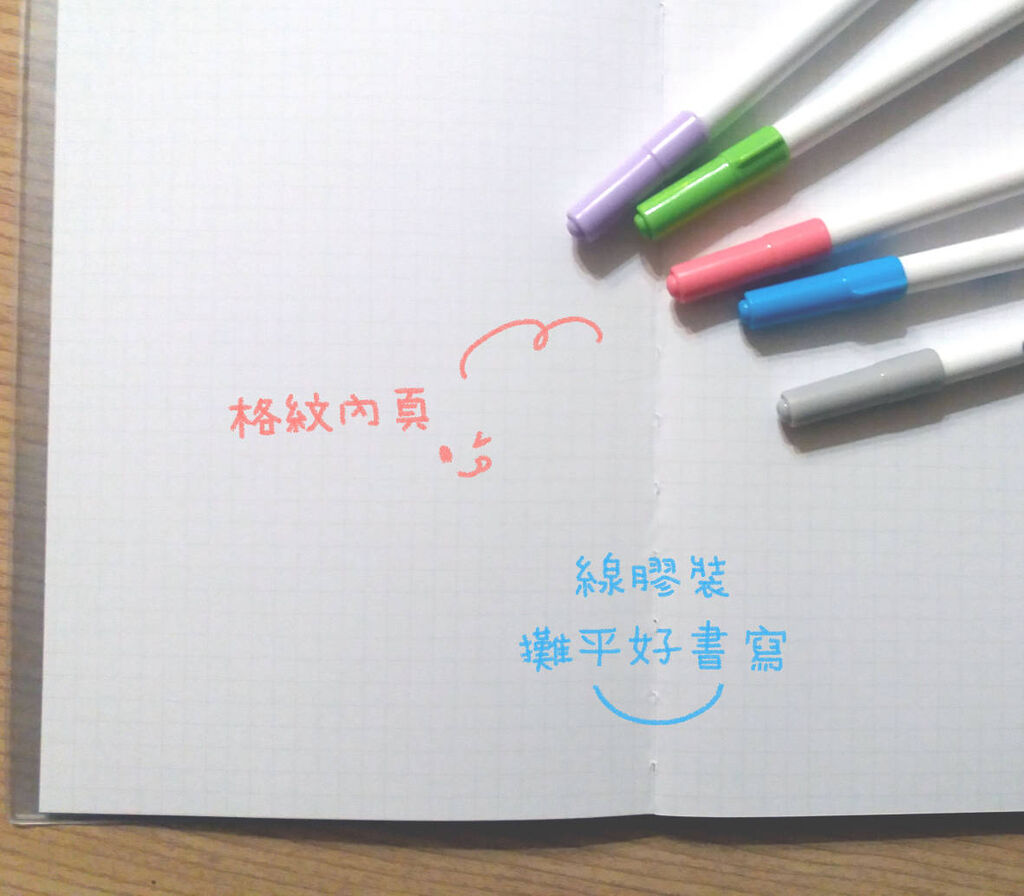 格紋內頁
線膠裝
攤平好書寫